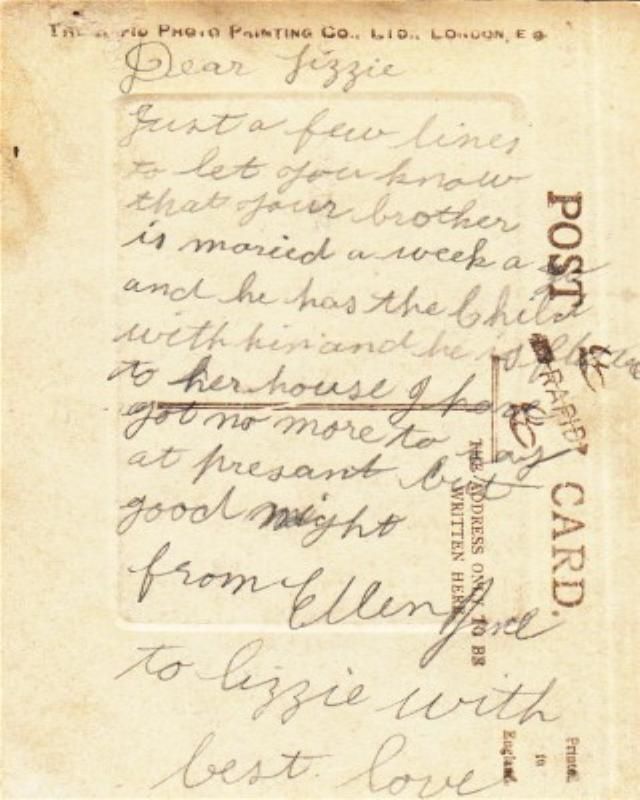 THE RAPID PHOTO PRINTING CO., LTD., LONDON, E C
Dear Lizzie
Just a few lines
to let you know
that your brother
is maried a week a
and he has the Child
with him and he is
to her house I have
got no more to say
at presant but
good night
from Ellen Jane
to lizzie with
best love
POST CARD.
RAPID
THE ADDRESS ONLY TO BE
WRITTEN HERE
Printed
in
England